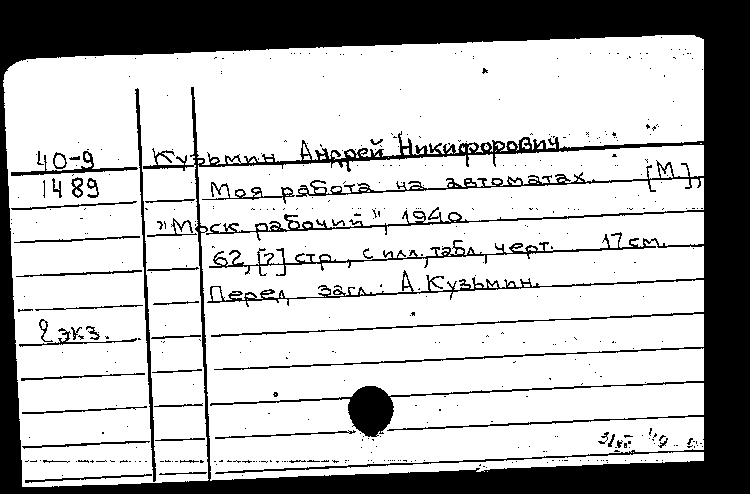 40-9 Кузьмин, Андрей Никифорович.
1489 Моя работа на автоматах. [М.],
"Моск. рабочий", 1940.
62, [2] стр., с илл., табл., черт. 17 см.
Перед загл.: А. Кузьмин.
2 экз.